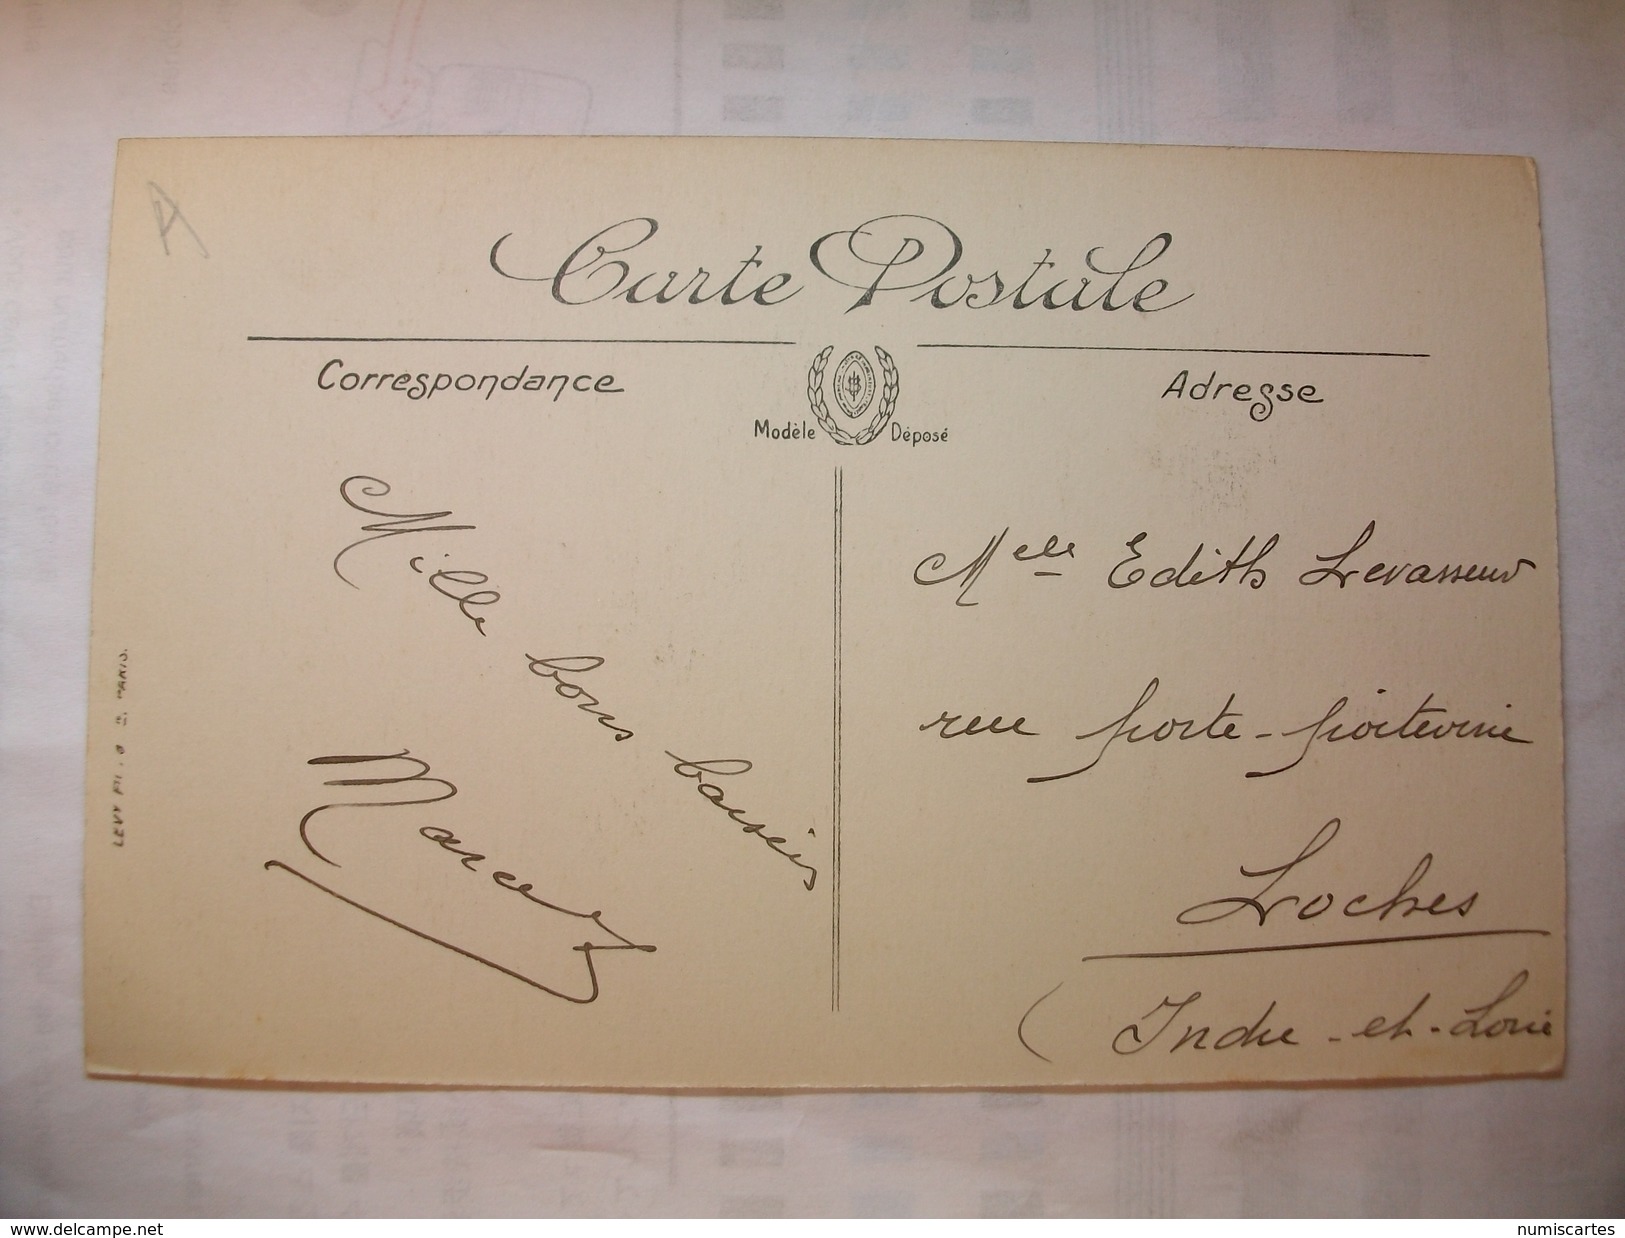 Carte Postale
Correspondance
Modèle Déposé
Adresse
Mille bons baisers
Marcel
Melle Edith Levasseur
rue porte-poitevine
Loches
(Indre-et-Loire
PARIS.
www.delcampe.net
numiscartes